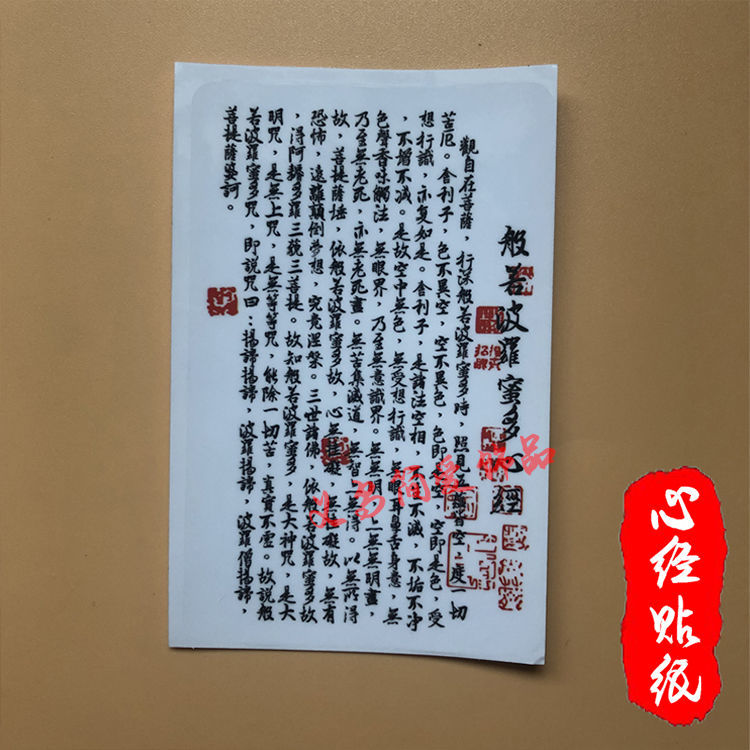 般若波羅蜜多心經
觀自在菩薩,行深般若波羅蜜多時,照見五蘊皆空,度一切
苦厄。舍利子,色不異空,空不異色,色即是空,空即是色,受
想行識,亦复如是。舍利子,是諸法空相,不生不滅,不垢不净
,不增不减。是故空中無色,無受想行識,無眼耳鼻舌身意,無
色聲香味觸法,無眼界,乃至無意識界。無無明,亦無無明盡,
乃至無老死,亦無老死盡。無苦集滅道,無智亦無得。以無所得
故,菩提薩埵,依般若波羅蜜多故,心無罣礙,無罣礙故,無有
恐怖,遠離顛倒夢想,究竟涅槃。三世諸佛,依般若波羅蜜多故
,得阿耨多羅三藐三菩提。故知般若波羅蜜多,是大神咒,是大
明咒,是無上咒,是無等等咒,能除一切苦,真實不虛。故說般
若波羅蜜多咒,即說咒曰:揚諦揚諦,波羅揚諦,波羅僧揚諦,
菩提薩婆訶。
义乌简爱饰品
心经贴纸